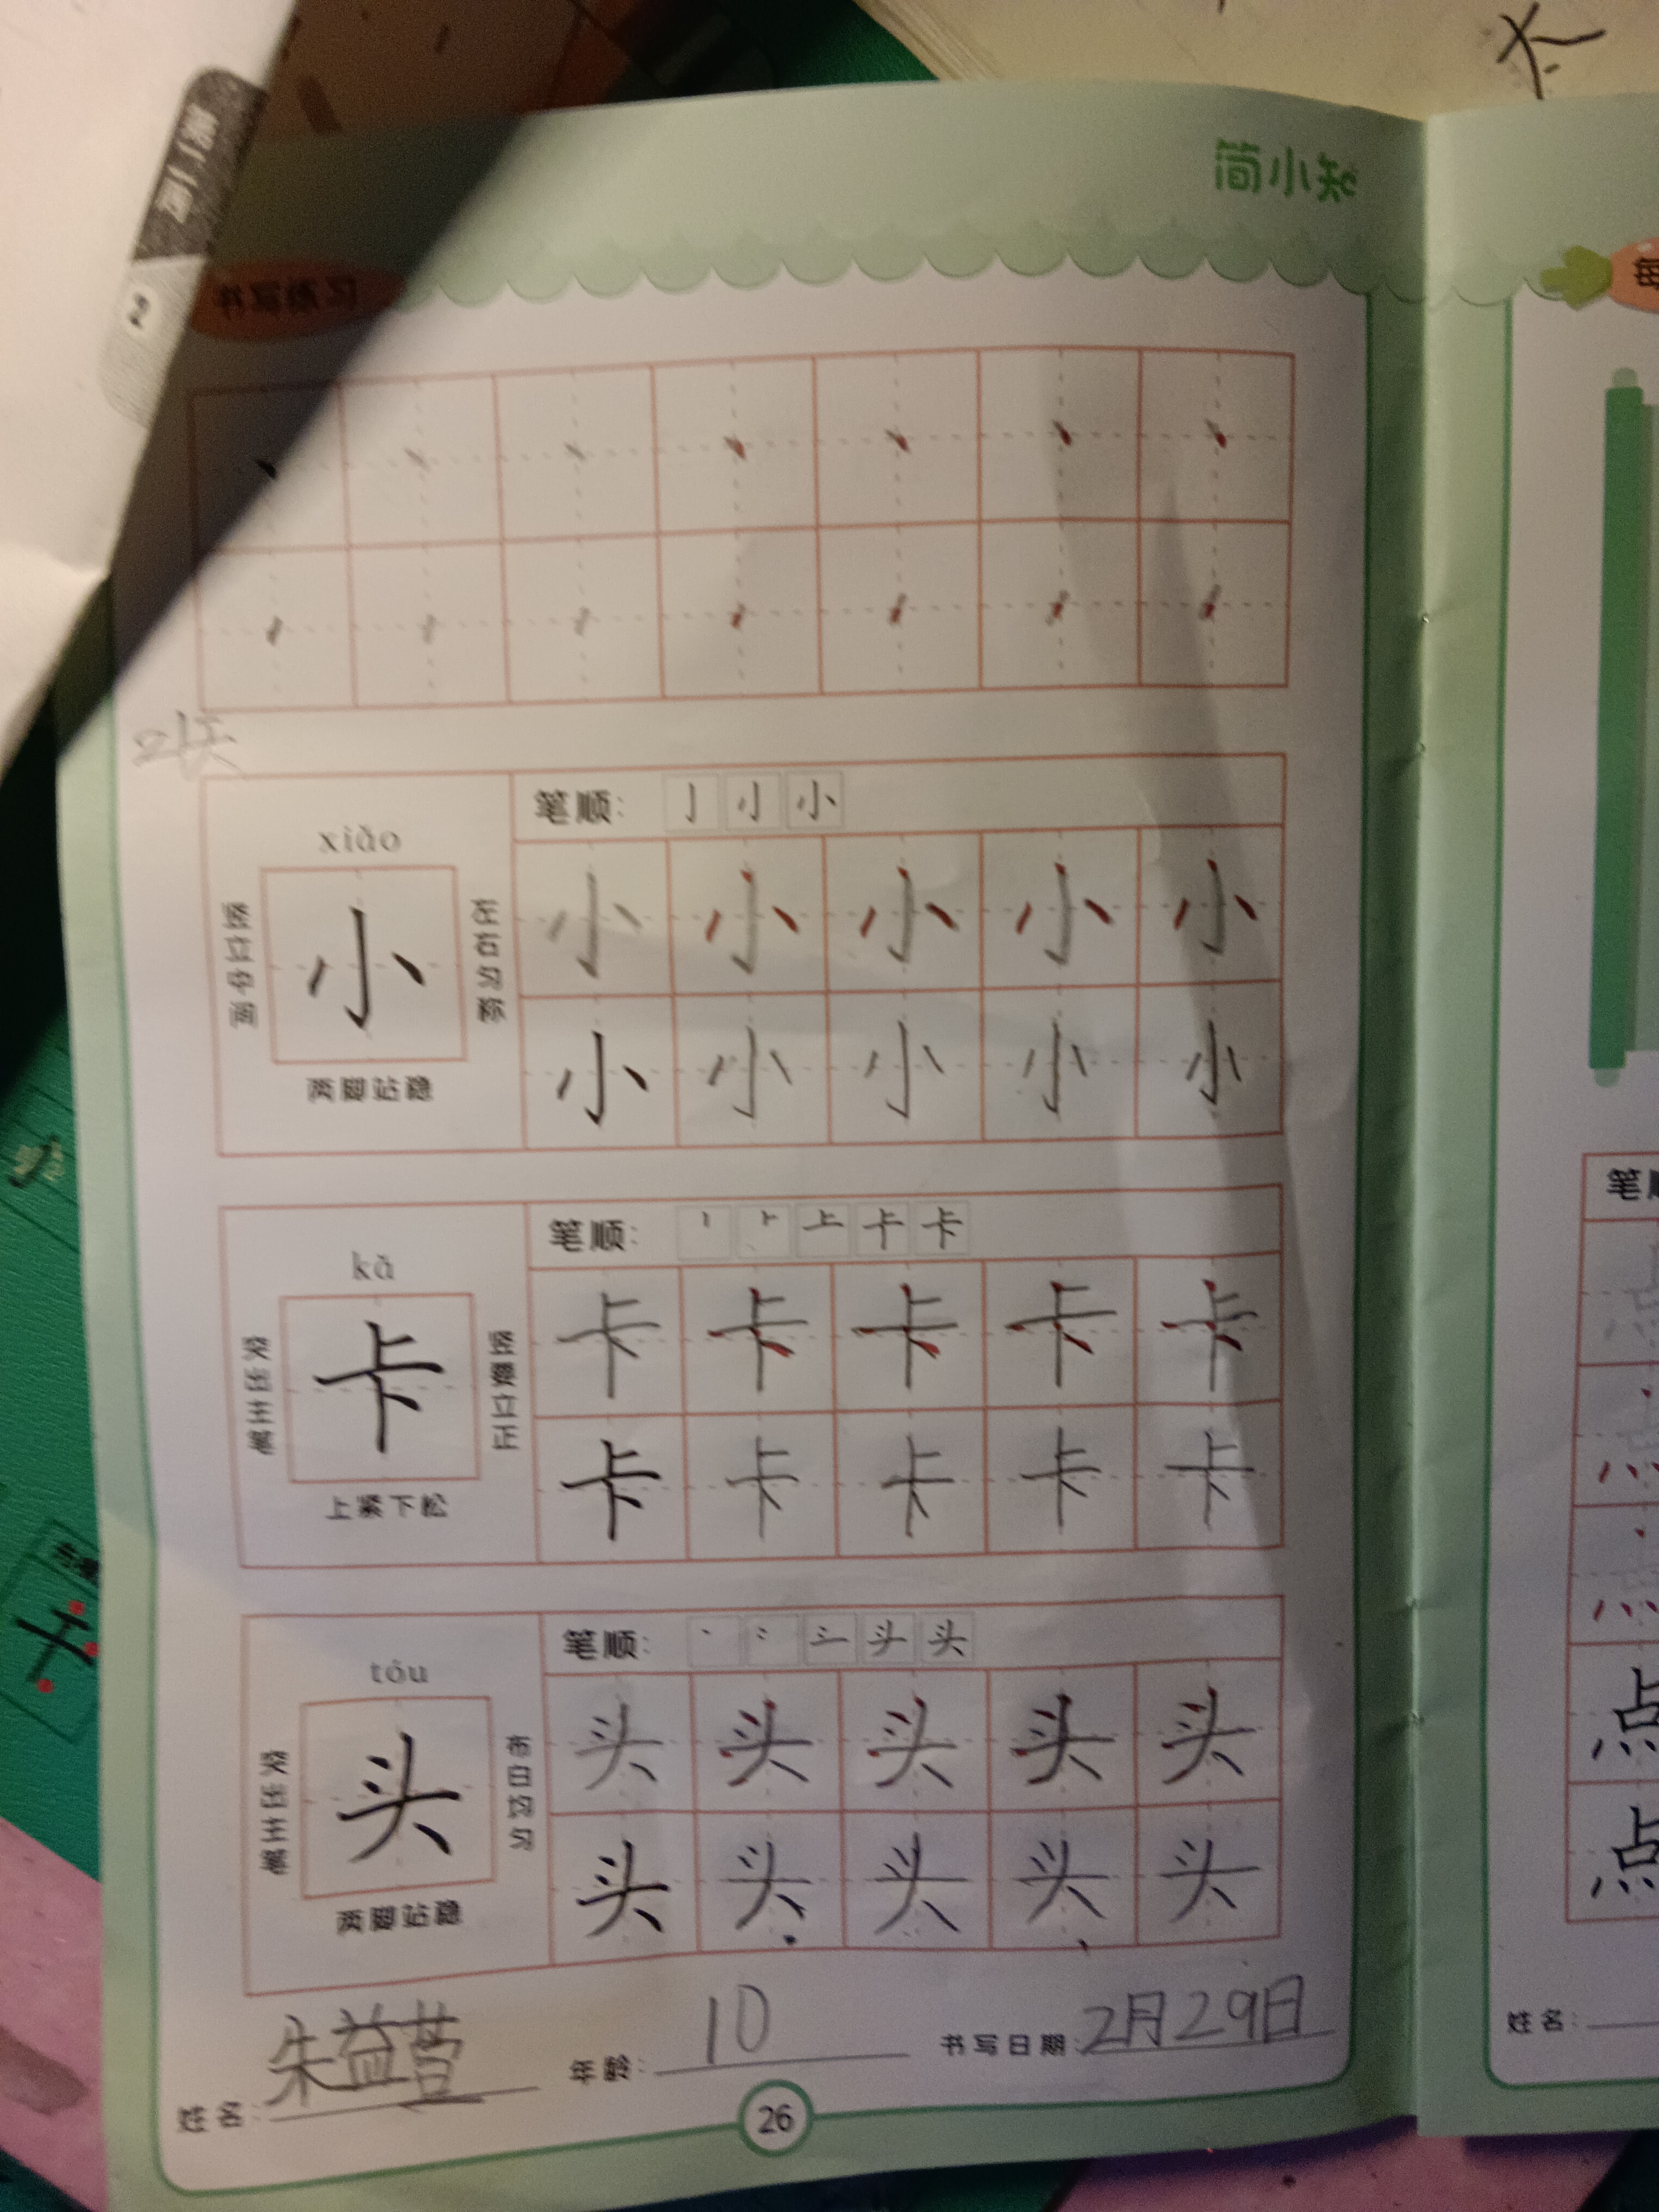 简小知
第二周
2
书写练习
xiǎo
笔顺:
小
竖立中间
左右匀称
两脚站稳
小 小 小 小 小
小 小 小 小 小
kǎ
笔顺: 卡
卡
突出主笔
竖要立正
上紧下松
卡 卡 卡 卡 卡
卡 卡 卡 卡 卡
tóu
笔顺: 头
头
突出主笔
布白均匀
两脚站稳
头 头 头 头 头
头 头 头 头 头
姓名: 朱益营 年龄: 10 书写日期: 2月29日
26
每
笔顺
点
点
姓名: